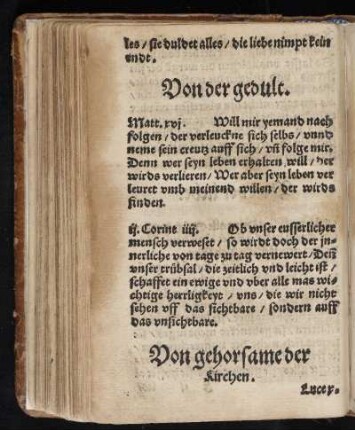 les / sie duldet alles / die liebe nimpt kein
endt.
Von der gedult.
Matt. xvj. Will mir yemand nach
folgen / der verleuckne sich selbs / vnnd
neme sein creutz auff sich / vñ folge mir.
Denn wer seyn leben erhalten will / der
wirds verlieren / Wer aber seyn leben ver
leuret vmb meinend willen / der wirds
finden.
ij. Corint iiij. Ob vnser eusserlicher
mensch verweset / so wirdt doch der jn-
nerliche von tage zu tag vernewert / Deñ
vnser trübsal / die zeitlich vnd leicht ist /
schaffet ein ewige vnd vber alle mas wi-
chtige herrligkeyt / vns / die wir nicht
sehen vff das sichtbare / sondern auff
das vnsichtbare.
Von gehorsame der
Kirchen.
Luce x.